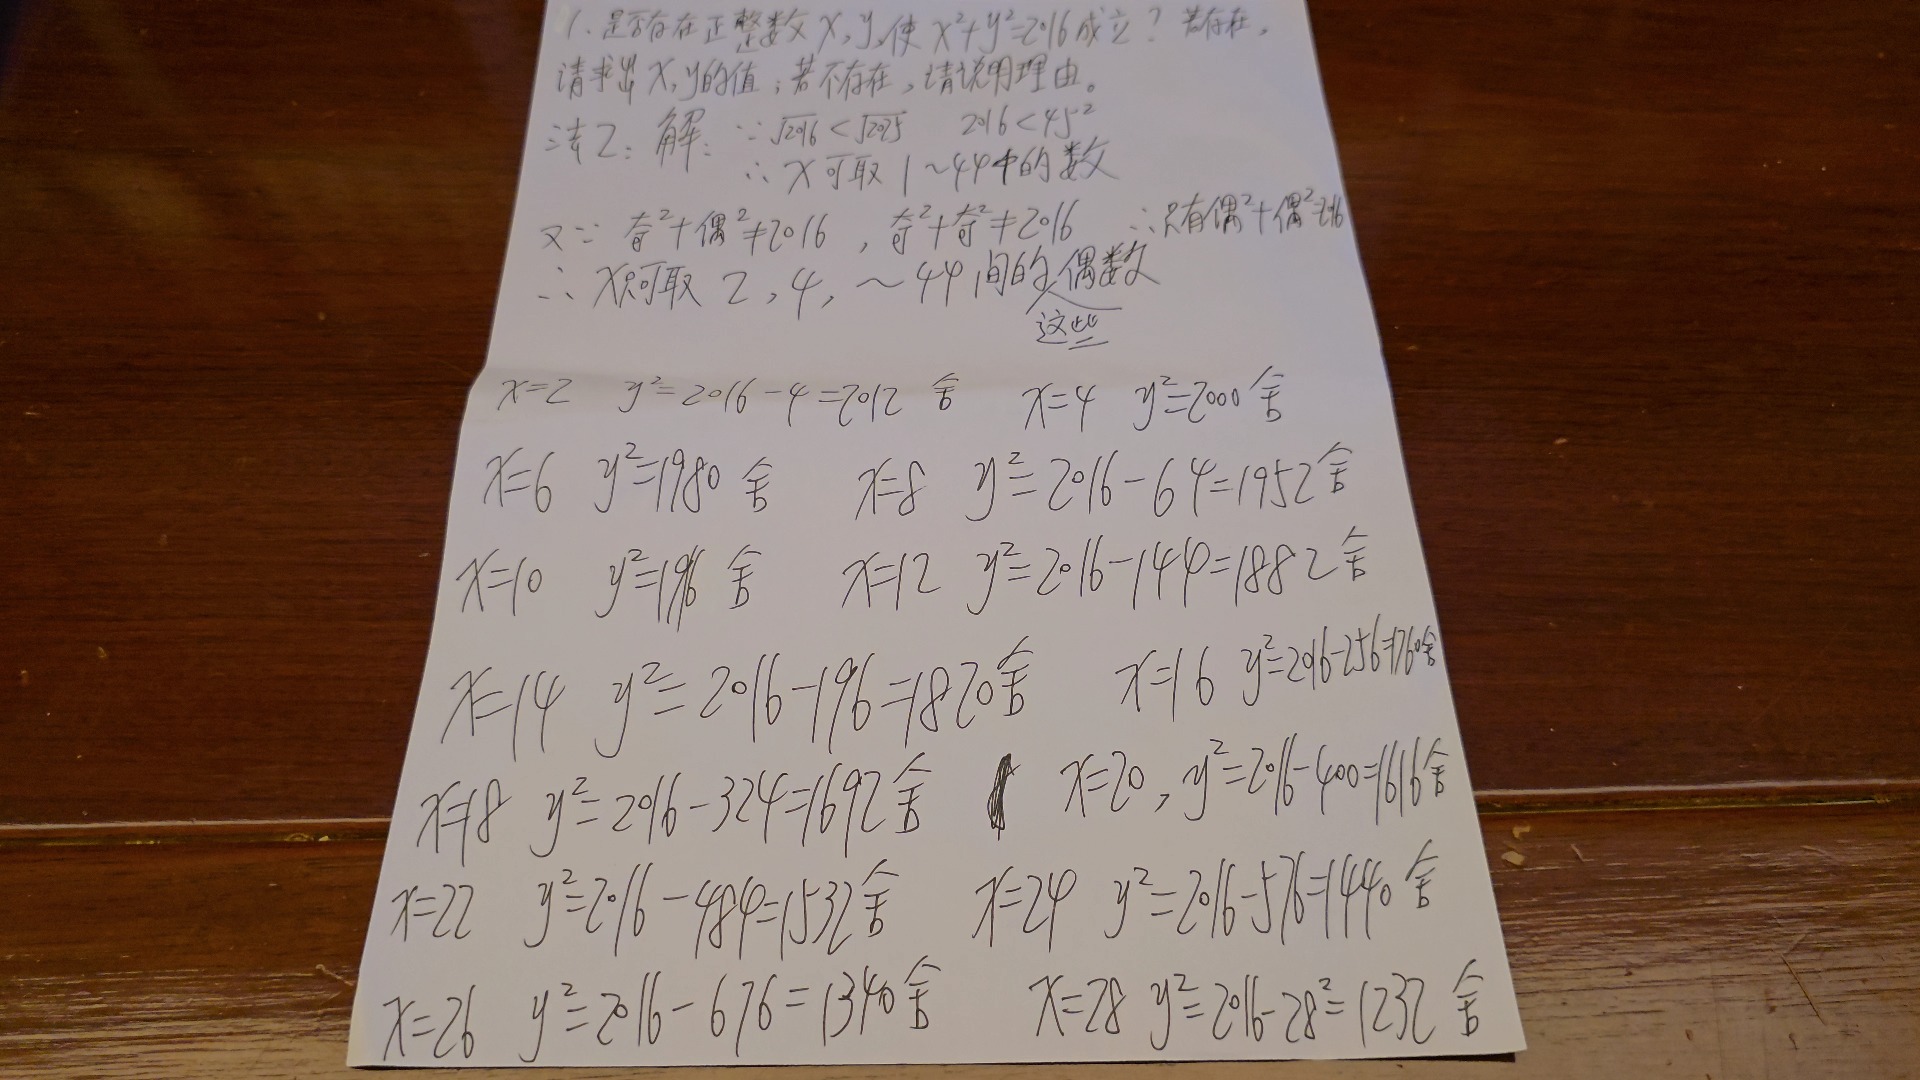 1. 是否存在正整数x,y,使x²+y²=2016成立?若存在,
请求出x,y的值;若不存在,请说明理由。
法2:解:∵√2016<√2025 2016<45²
∴x可取1~44中的数
又∵奇²+偶²≠2016,奇²+奇²≠2016 ∴只有偶²+偶²=2016
∴x只可取2,4,~44间的偶数
这些
x=2 y²=2016-4=2012舍 x=4 y²=2000舍
x=6 y²=1980舍 x=8 y²=2016-64=1952舍
x=10 y²=1916舍 x=12 y²=2016-144=1882舍
x=14 y²=2016-196=1820舍 x=16 y²=2016-256=1760舍
x=18 y²=2016-324=1692舍 x=20,y²=2016-400=1616舍
x=22 y²=2016-484=1532舍 x=24 y²=2016-576=1440舍
x=26 y²=2016-676=1340舍 x=28 y²=2016-28²=1232舍